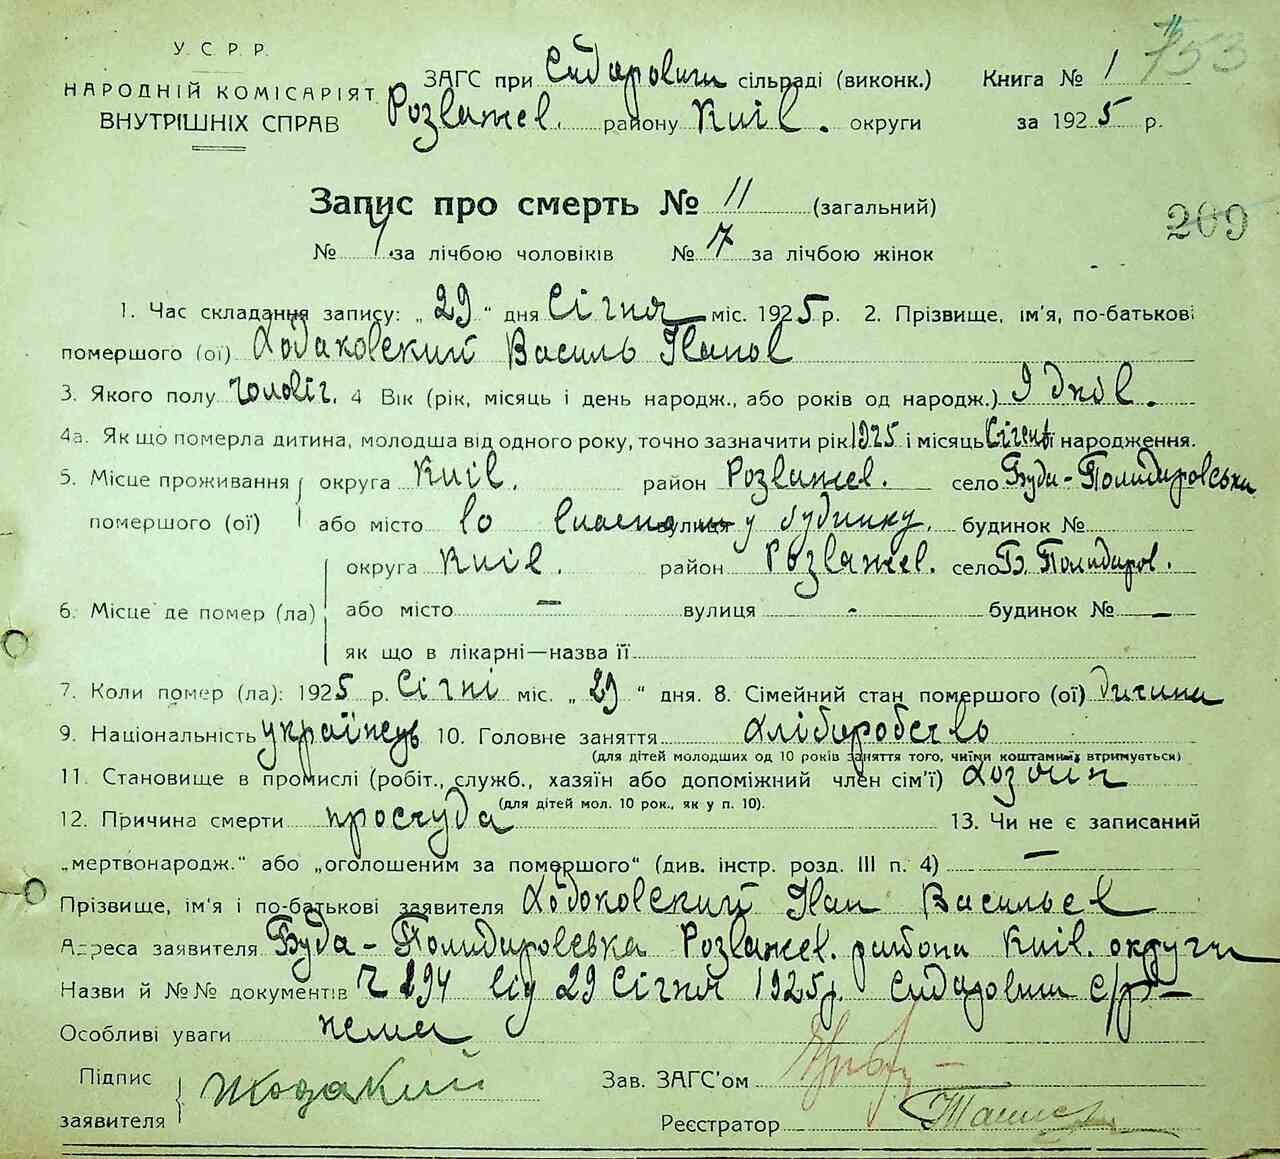 У. С. Р. Р.
НАРОДНІЙ КОМІСАРІЯТ
ВНУТРІШНІХ СПРАВ
ЗАГС при Сидорович сільраді (виконк.)
Розважев. району Київ. округи
Книга № 1
за 1925 р.
753
209
Запис про смерть № 11 (загальний)
№ 4 за лічбою чоловіків № 7 за лічбою жінок
1. Час складання запису: „29“ дня Січня міс. 1925 р. 2. Прізвище, ім'я, по-батькові
помершого (ої) Ходаковский Василь Іванов
3. Якого полу чоловіч. 4 Вік (рік, місяць і день народж., або років од народж.) 9 днів.
4а. Як що померла дитина, молодша від одного року, точно зазначити рік 1925 і місяць Січень народження.
5. Місце проживання округа Київ. район Розважев. село Буда-Полидаровська
помершого (ої) або місто во власном вулиця у будинку. будинок №
округа Київ. район Розважев. село Б. Полидаров.
6. Місце де помер (ла) або місто — вулиця - будинок № —
як що в лікарні—назва її
7. Коли помер (ла): 1925 р. Січні міс. „29“ дня. 8. Сімейний стан помершого (ої) дитина
9. Національність українець 10. Головне заняття хліборобство
(для дітей молодших од 10 років заняття того, чиїми коштами їх втримується)
11. Становище в промислі (робіт., служб., хазяїн або допоміжний член сім'ї) хозяин
(для дітей мол. 10 рок., як у п. 10).
12. Причина смерти простуда 13. Чи не є записаний
„мертвонародж.“ або „оголошеним за помершого“ (див. інстр. розд. III п. 4) —
Прізвище, ім'я і по-батькові заявителя Ходоковский Іван Васильев
Адреса заявителя Буда-Полидаровська Розважев. района Київ. округи
Назви й №№ документів Ч 294 від 29 Січня 1925 р. Сидорович с/р —
Особливі уваги нема
Підпис
заявителя
Зав. ЗАГС'ом
Реєстратор